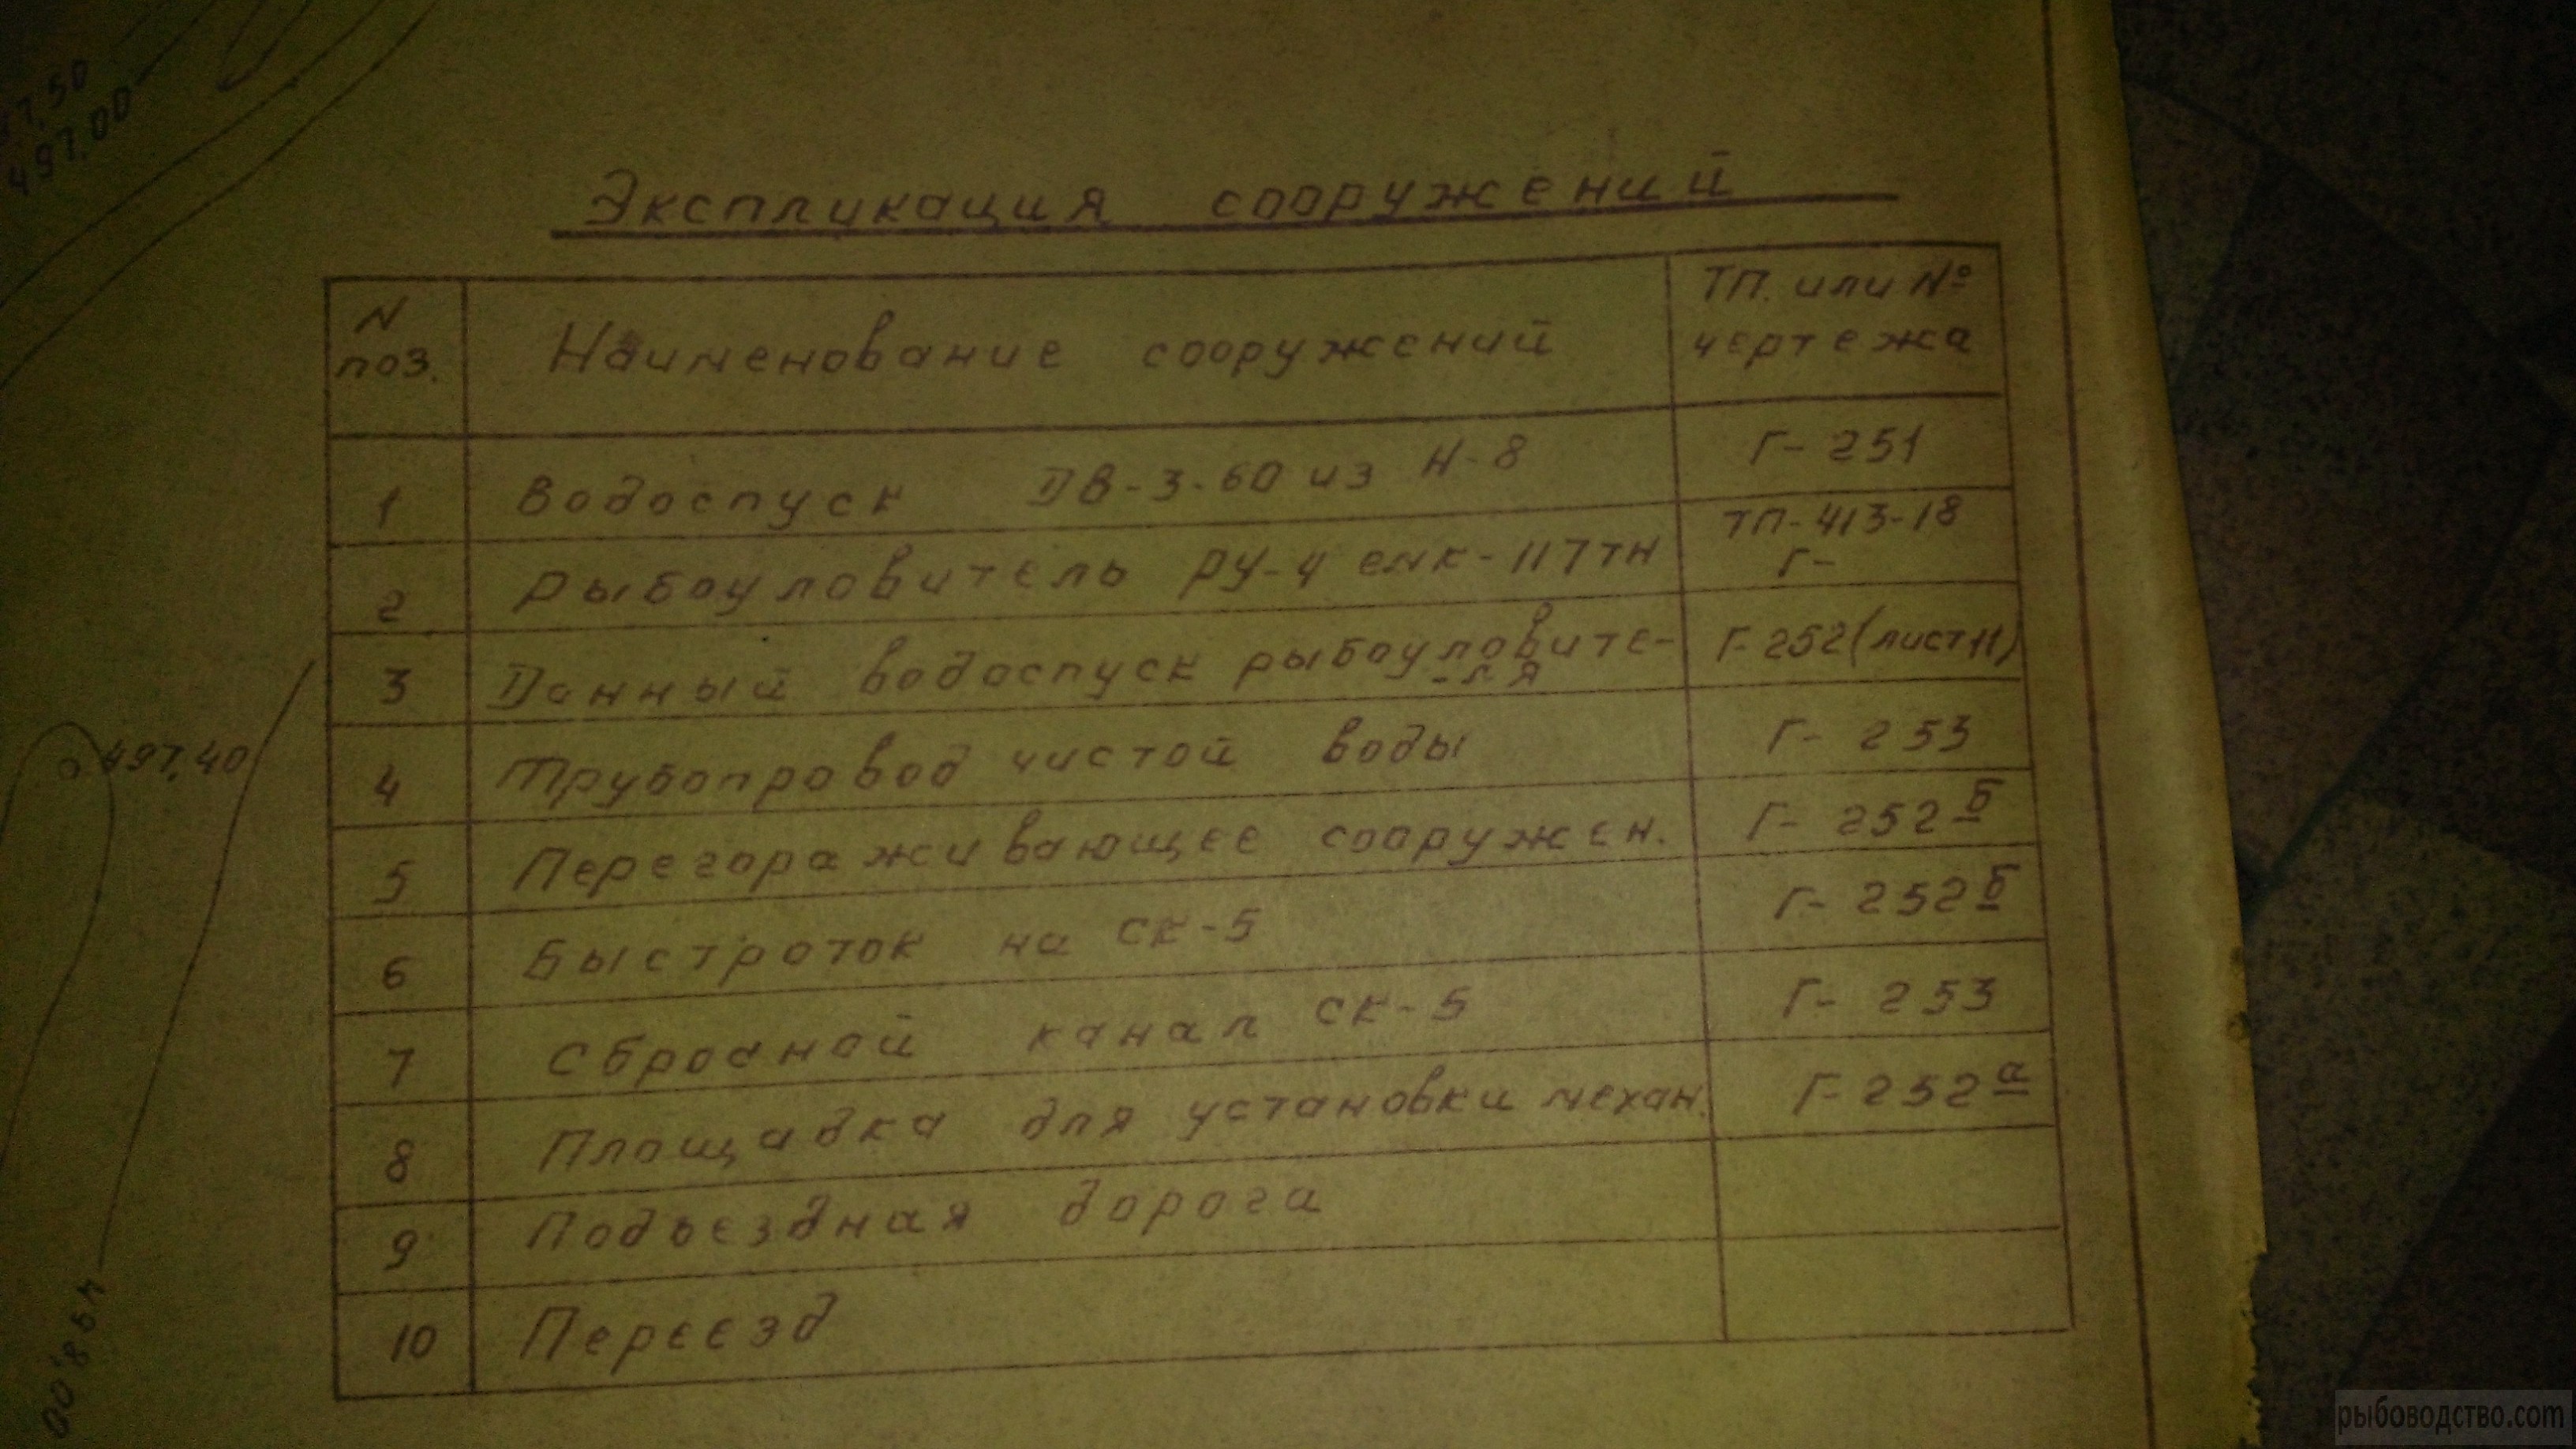 497,00
Экспликация сооружений
N поз.
Наименование сооружений
ТП. или № чертежа
1 Водоспуск ДВ-3-60 из Н-8 Г-251
2 Рыбоуловитель РУ-4 емк-117тн ТП-413-18 Г-
3 Донный водоспуск рыбоуловите- -ля Г-252(лист11)
4 Трубопровод чистой воды Г-253
5 Перегораживающее сооружен. Г-252б
6 Быстроток на СК-5 Г-252б
7 Сбросной канал СК-5 Г-253
8 Площадка для установки механ. Г-252а
9 Подьездная дорога
10 Переезд
497,40
498,00
рыбоводство.com